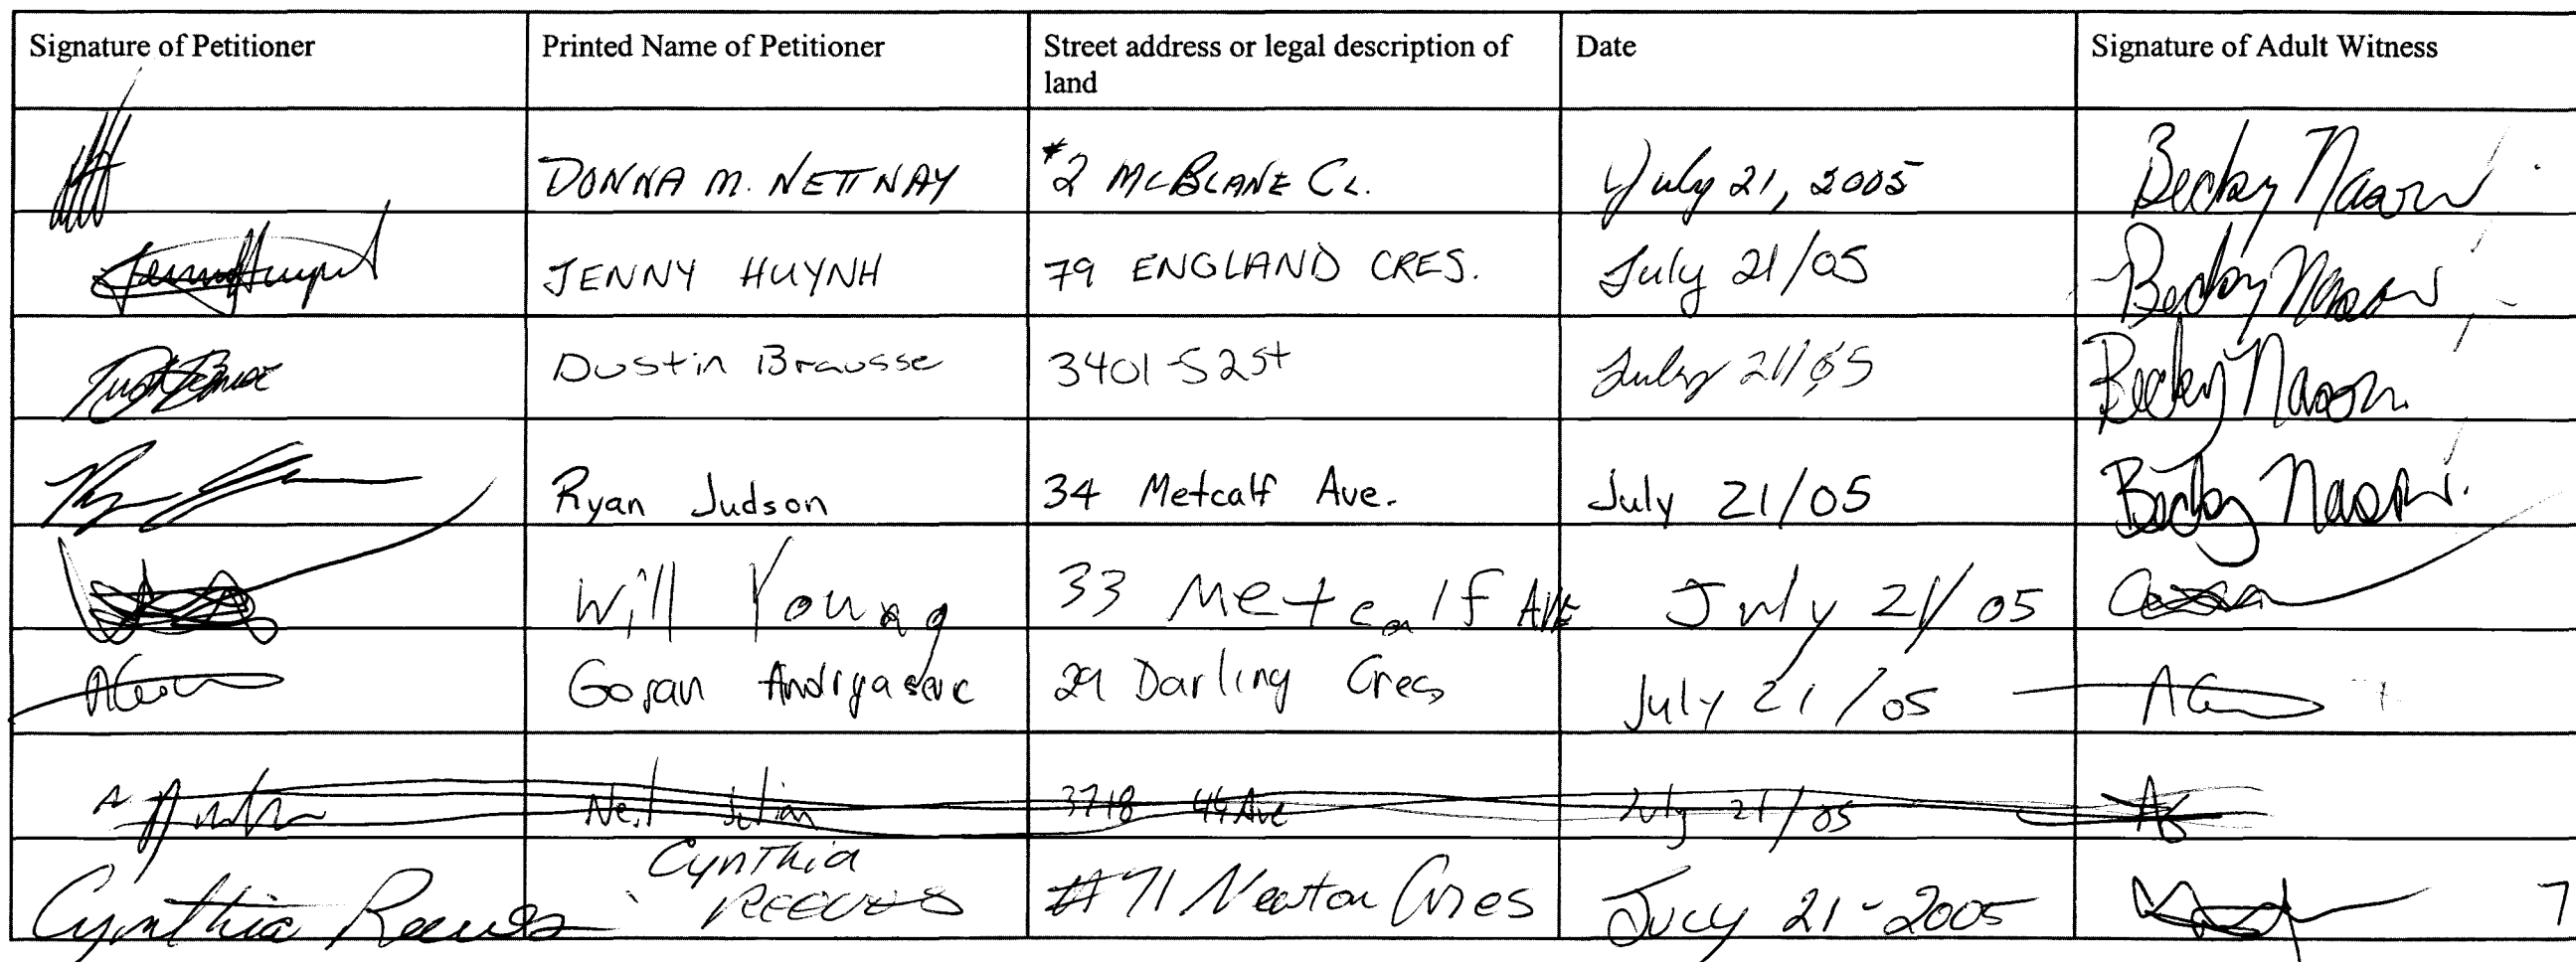 Signature of Petitioner Printed Name of Petitioner Street address or legal description of Date Signature of Adult Witness
land
DONNA M. NETTNAY #2 MCBLANE CL. July 21, 2005 Becky Nason
Jenny Huynh JENNY HUYNH 79 ENGLAND CRES. July 21/05 Becky Nason
Dustin Brausse 3401-52st July 21/05 Becky Nason
Ryan Judson 34 Metcalf Ave. July 21/05 Becky Nason
Will Young 33 Metcalf AVE July 21/05
Goran 29 Darling Cres July 21/05
Neil 3718 44 Ave July 21/05
Cynthia
Cynthia Reeves REEVES #71 Newton Cres July 21-2005 7